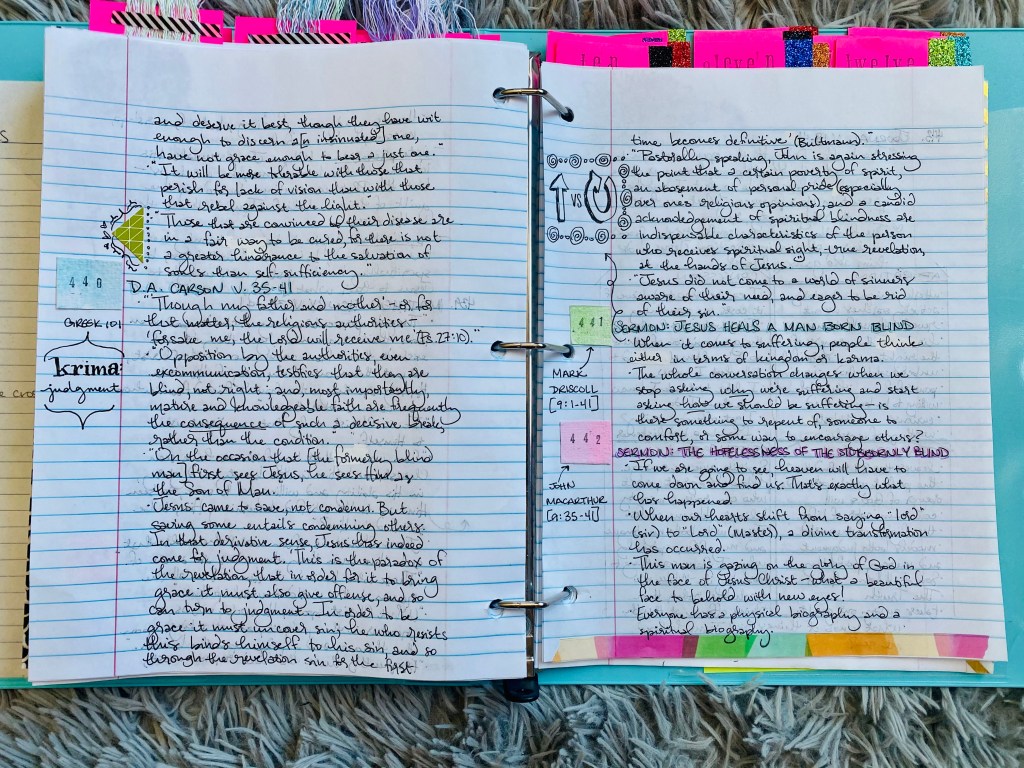 and deserve it best, though they have wit
enough to discern a[n insinuated] one,
have not grace enough to bear a just one."
·"It will be more tolerable with those that
perish for lack of vision than with those
that rebel against the light."
·"Those that are convinced of their disease are
in a fair way to be cured, for there is not
a greater hindrance to the salvation of
souls than self-sufficiency."
440
D.A. CARSON V. 35-41
·"'Though my father and mother' - or, for
that matter, the religious authorities -
'forsake me, the Lord will receive me' (Ps. 27:10)."
GREEK 101
krima
judgment
·"Opposition by the authorities, even
excommunication, testifies that they are
blind, not right; and, most importantly,
mature and knowledgeable faith are frequently
the consequence of such a decisive break,
rather than the condition."
·"On the occasion that [the formerly blind
man] first sees Jesus, he sees him as
the Son of Man.
·"Jesus came to save, not condemn. But
saving some entails condemning others.
In that derivative sense, Jesus has indeed
come for judgment. 'This is the paradox of
the revelation, that in order for it to bring
grace it must also give offense, and so
can turn to judgment. In order to be
grace it must uncover sin; he who resists
this binds himself to his sin, and so
through the revelation sin for the first
ten
eleven
twelve
time becomes definitive' (Bultmann)."
·"Pastorally speaking, John is again stressing
the point that a certain poverty of spirit,
an abasement of personal pride (especially
over one's religious opinions), and a candid
acknowledgement of spiritual blindness are
indispensable characteristics of the person
who receives spiritual sight, true revelation,
at the hands of Jesus.
VS
·"Jesus did not come to a world of sinners
aware of their need, and eager to be rid
of their sin."
441
SERMON: JESUS HEALS A MAN BORN BLIND
MARK
DRISCOLL
[9:1-41]
·When it comes to suffering, people think
either in terms of kingdom or karma.
·The whole conversation changes when we
stop asking why we're suffering and start
asking how we should be suffering - is
there something to repent of, someone to
comfort, or some way to encourage others?
442
SERMON: THE HOPELESSNESS OF THE STUBBORNLY BLIND
JOHN
MACARTHUR
[9:35-41]
·If we are going to see, heaven will have to
come down and find us. That's exactly what
has happened.
·When our hearts shift from saying "lord"
(sir) to "Lord" (Master), a divine transformation
has occurred.
·This man is gazing on the glory of God in
the face of Jesus Christ - what a beautiful
face to behold with new eyes!
·Everyone has a physical biography and a
spiritual biography.